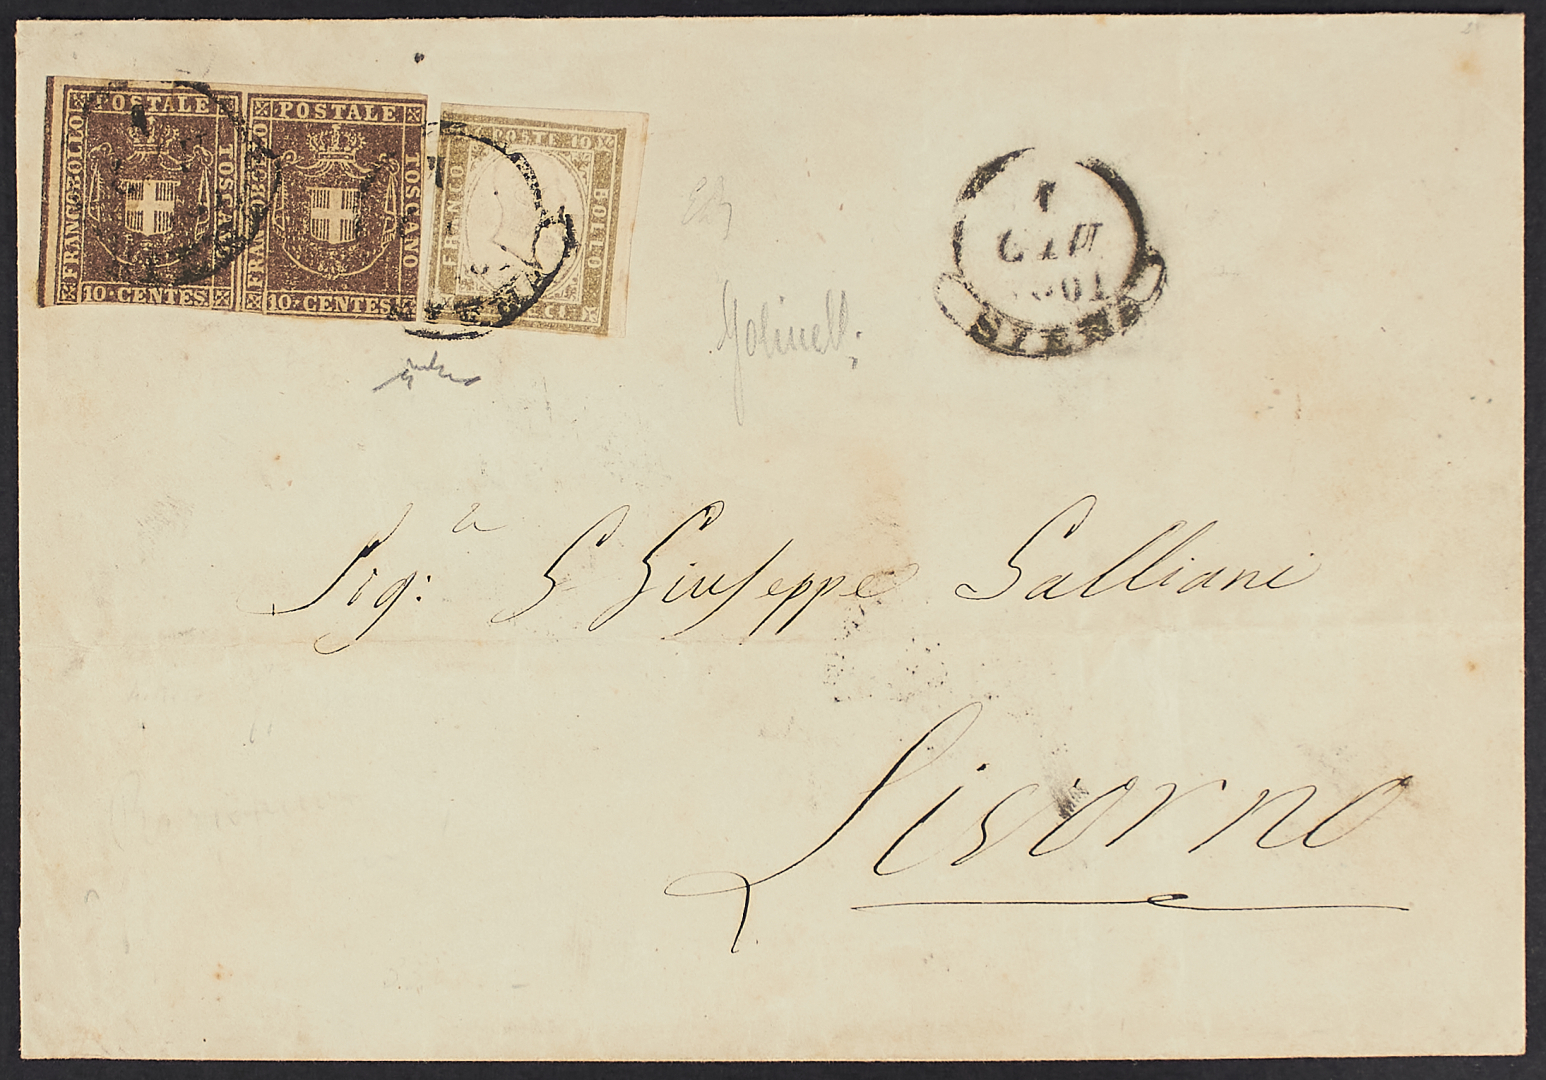 POSTALE
FRANCOBOLLO
TOSCANO
10 · CENTES
POSTALE
FRANCOBOLLO
TOSCANO
10 · CENTES
POSTE
FRANCO
BOLLO
1
GIU
SIENA
Sig:ʳ G Giuseppe Galliani
Livorno